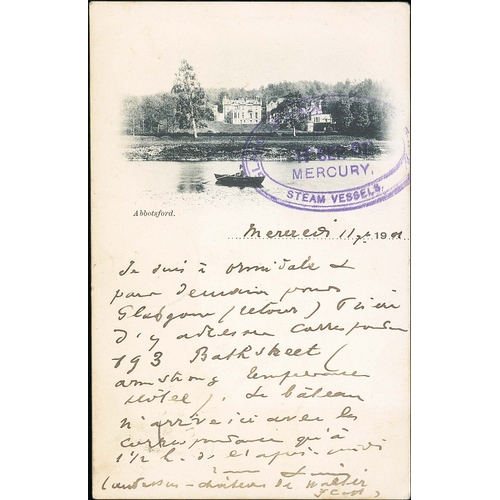 11 SEP 01
MERCURY,
STEAM VESSELS.
Abbotsford.
Mercredi 11 7bre 1901
Je suis à Ormidale &
pars demain pour
Glasgow (retour) Prière
d'y adresser correspondance
193 Bath Street (
Armstrong Temperance
Hôtel). Le bâteau
n'arrive ici avec les
correspondance qu'à
1 1/2 h. de l'après-midi
(au dessus - château de Walter
Scott)